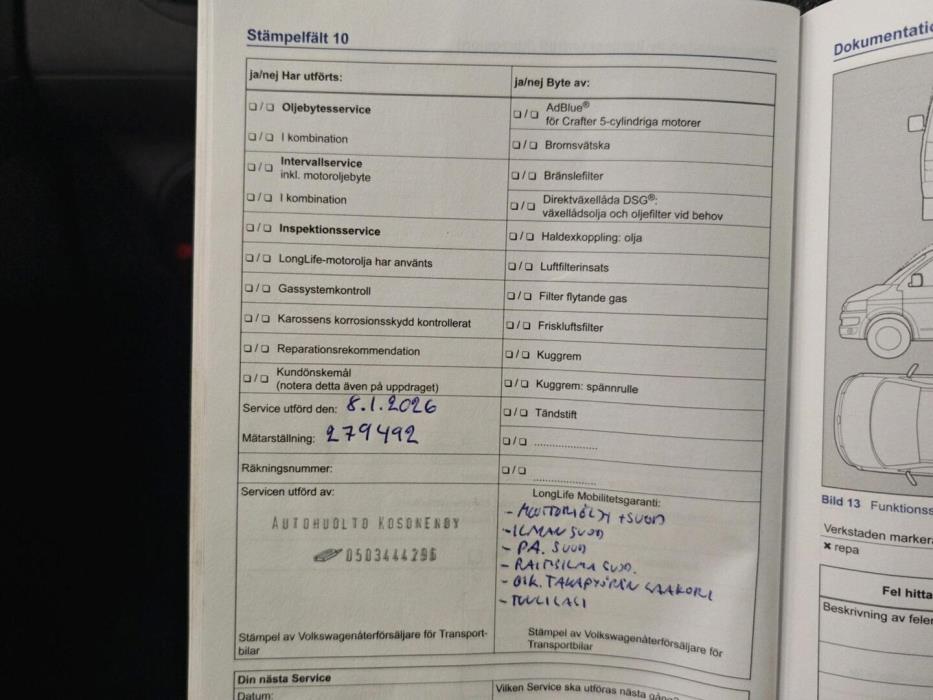 Stämpelfält 10
ja/nej Har utförts:
❑/❑ Oljebytesservice
❑/❑ I kombination
❑/❑ Intervallservice
inkl. motoroljebyte
❑/❑ I kombination
❑/❑ Inspektionsservice
❑/❑ LongLife-motorolja har använts
❑/❑ Gassystemkontroll
❑/❑ Karossens korrosionsskydd kontrollerat
❑/❑ Reparationsrekommendation
❑/❑ Kundönskemål
(notera detta även på uppdraget)
Service utförd den: 8.1.2026
Mätarställning: 279492
Räkningsnummer:
Servicen utförd av:
AUTOHUOLTO KOSONEN OY
0503444296
Stämpel av Volkswagenåterförsäljare för Transport-
bilar
ja/nej Byte av:
❑/❑ AdBlue®
för Crafter 5-cylindriga motorer
❑/❑ Bromsvätska
❑/❑ Bränslefilter
❑/❑ Direktväxellåda DSG®:
växellådsolja och oljefilter vid behov
❑/❑ Haldexkoppling: olja
❑/❑ Luftfilterinsats
❑/❑ Filter flytande gas
❑/❑ Friskluftsfilter
❑/❑ Kuggrem
❑/❑ Kuggrem: spännrulle
❑/❑ Tändstift
❑/❑ ....................
❑/❑ ....................
LongLife Mobilitetsgaranti:
- MOOTTORIÖLJY +SUOD
- ILMAN SUOD
- PA. SUOD
- RAITISILMA SUOD.
- OIK. TAKAPYÖRÄN LAAKERI
- TUULILASI
Stämpel av Volkswagenåterförsäljare för
Transportbilar
Din nästa Service
Datum:
Vilken Service ska utföras nästa gång?
Dokumentatio
Bild 13 Funktionss
Verkstaden marker
× repa
Fel hitta
Beskrivning av felen